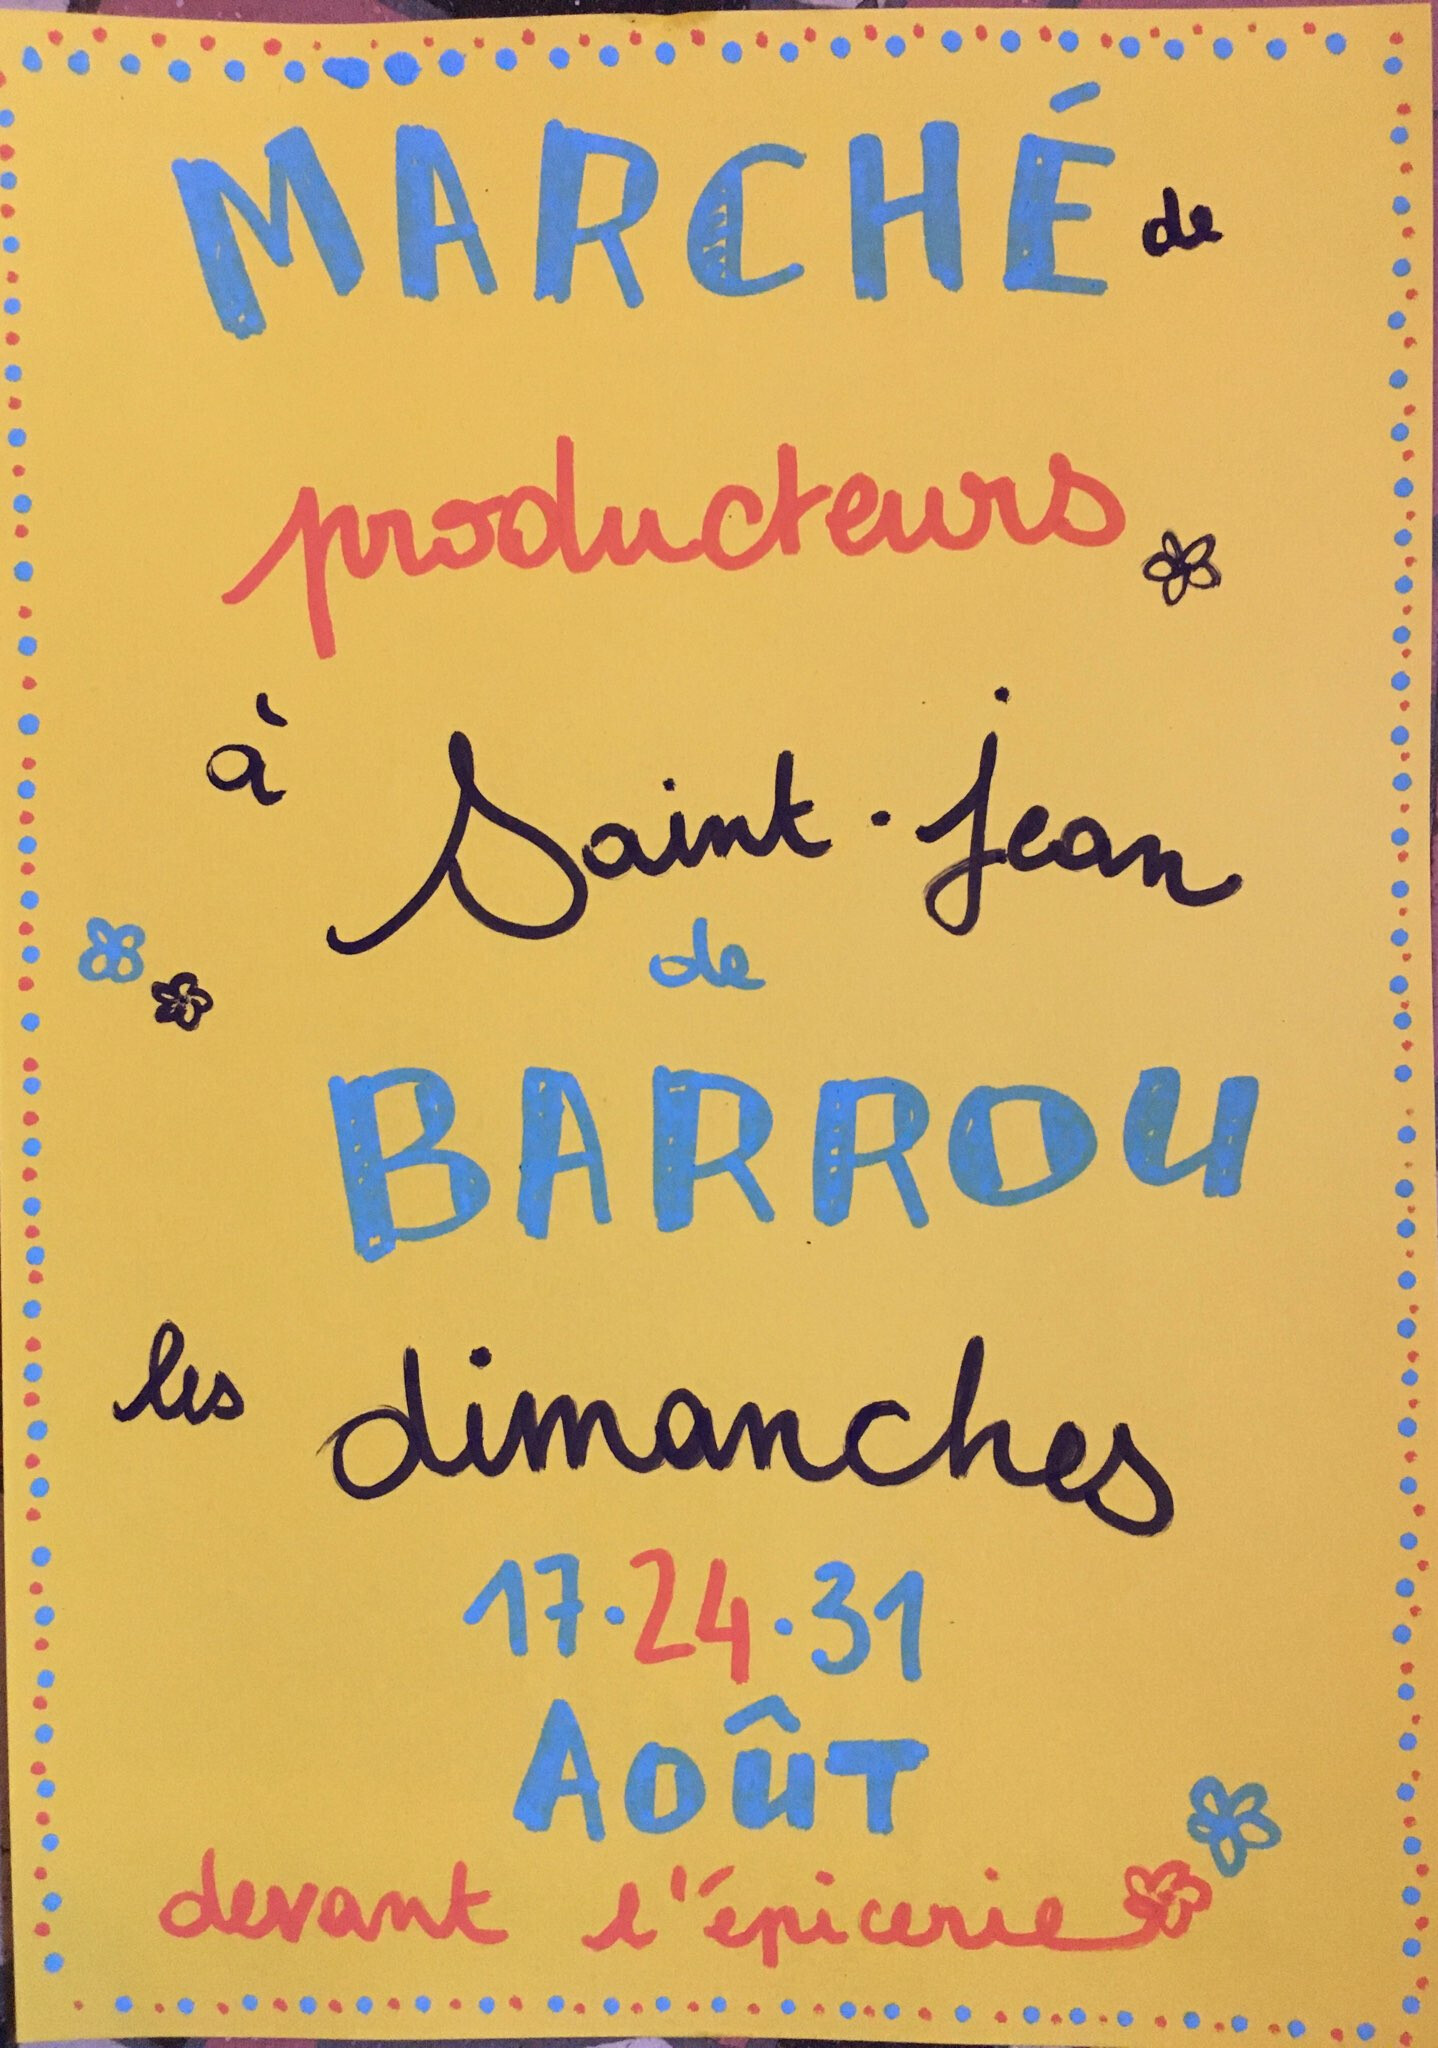 MARCHÉ de
producteurs
à Saint-Jean
de
BARROU
les dimanches
17·24·31
Août
devant l'épicerie